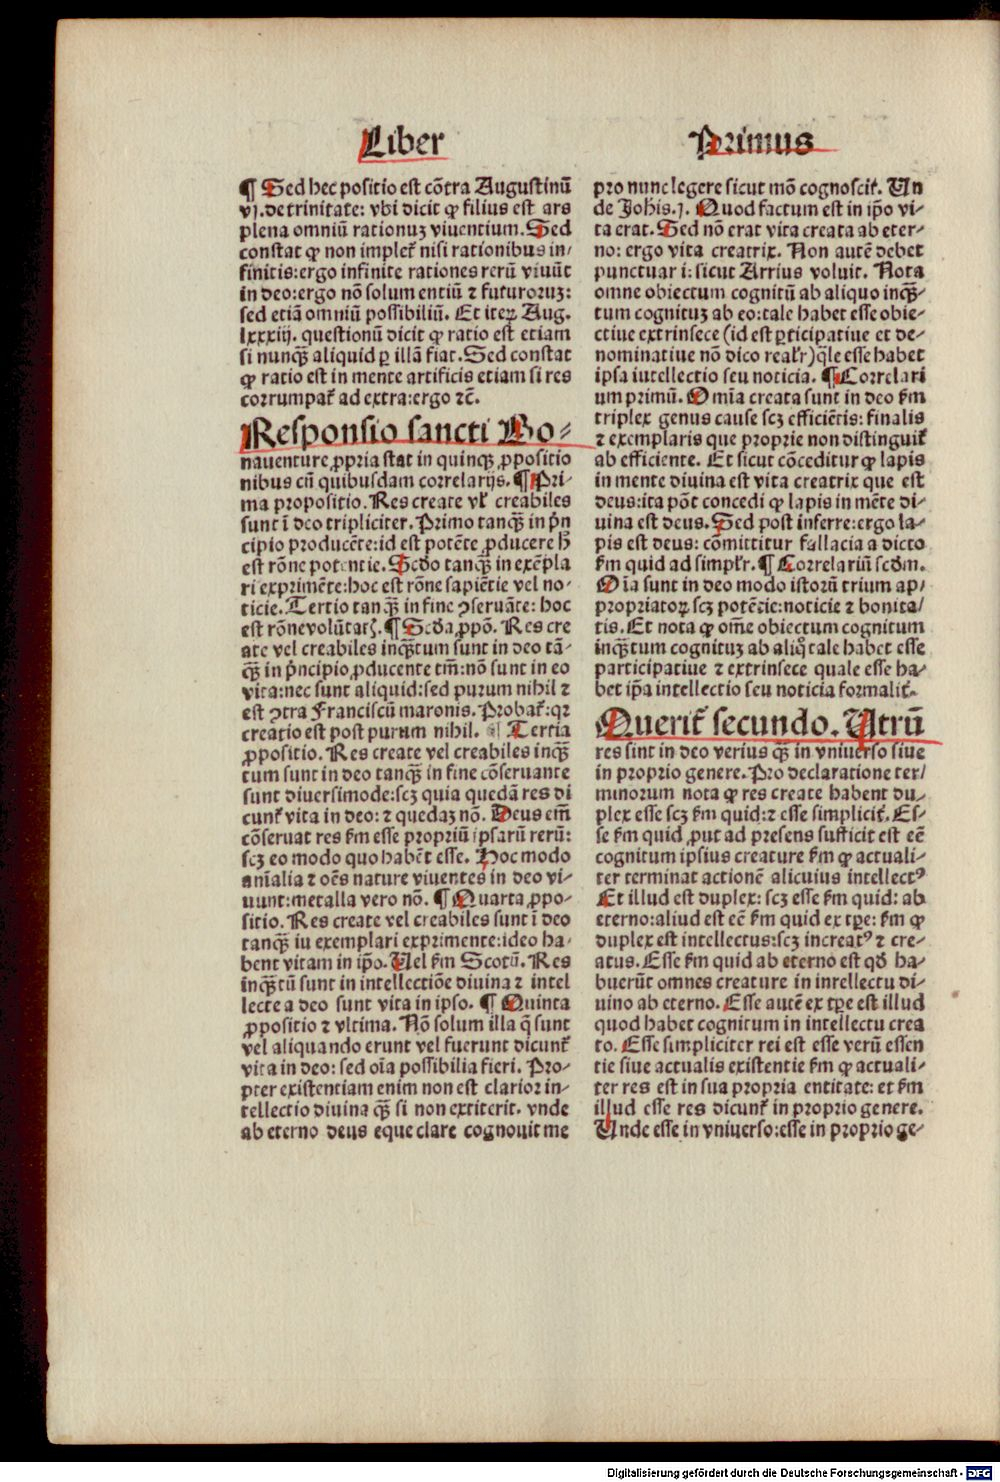 Liber
¶ Sed hec positio est cõtra Augustinũ
vj. de trinitate: vbi dicit ꝙ filius est ars
plena omniũ rationuꝫ viuentium. Sed
constat ꝙ non impletʳ nisi rationibus in⸗
finitis: ergo infinite rationes rerũ viuũt
in deo: ergo nõ solum entiũ ⁊ futuroruꝫ:
sed etiã omniũ possibiliũ. Et iteꝝ Aug.
lxxxiij. questionũ dicit ꝙ ratio est etiam
si nunqͣꝫ aliquid ꝑ illã fiat. Sed constat
ꝙ ratio est in mente artificis etiam si res
corrumpatʳ ad extra: ergo ⁊c̃.
Responsio sancti Bo⸗
nauenture ꝓpria stat in quinqꝫ ꝓpositio
nibus cũ quibusdam correlarijs. ¶ Pri⸗
ma propositio. Res create vl̕ creabiles
sunt ĩ deo tripliciter. Primo tanqͣꝫ in p̃n
cipio producẽte: id est potẽte ꝓducere h̃
est rõne potentie. Scd̕o tanqͣꝫ in exẽpla
ri exprimẽte: hoc est rõne sapiẽtie vel no⸗
ticie. Tertio tanqͣꝫ in fine ꝯseruãte: hoc
est rõne volũtatꝭ. ¶ Scd̕a ꝓpõ. Res cre
ate vel creabiles inqͣꝫtum sunt in deo tã⸗
qͣꝫ in p̃ncipio ꝓducente tm̃: nõ sunt in eo
vita: nec sunt aliquid: sed purum nihil ⁊
est ꝯtra Franciscũ maronis. Probatʳ: qꝛ
creatio est post purum nihil. ¶ Tertia
ꝓpositio. Res create vel creabiles inqͣꝫ
tum sunt in deo tanqͣꝫ in fine cõseruante
sunt diuersimode: scꝫ quia quedã res di
cuntʳ vita in deo: ⁊ quedaꝫ nõ. Deus em̃
cõseruat res fm̃ esse propriũ ipsarũ rerũ:
scꝫ eo modo quo habẽt esse. Hoc modo
anĩalia ⁊ oẽs nature viuentes in deo vi⸗
uunt: metalla vero nõ. ¶ Quarta ꝓpo⸗
sitio. Res create vel creabiles sunt ĩ deo
tanqͣꝫ iu exemplari exprimente: ideo ha⸗
bent vitam in ip̃o. Vel fm̃ Scotũ. Res
inqͣꝫtũ sunt in intellectiõe diuina ⁊ intel
lecte a deo sunt vita in ipso. ¶ Quinta
ꝓpositio ⁊ vltima. Nõ solum illa q̃ sunt
vel aliquando erunt vel fuerunt dicuntʳ
vita in deo: sed oĩa possibilia fieri. Pro⸗
pter existentiam enim non est clarior in⸗
tellectio diuina qͣꝫ si non extiterit. vnde
ab eterno deus eque clare cognouit me
Primus
pro nunc legere sicut mõ cognoscitʳ. Un
de Johis. j. Quod factum est in ip̃o vi⸗
ta erat. Sed nõ erat vita creata ab eter⸗
no: ergo vita creatrix. Non autẽ debet
punctuari: sicut Arrius voluit. Nota
omne obiectum cognitũ ab aliquo inqͣꝫ⸗
tum cognituꝫ ab eo: tale habet esse obie⸗
ctiue extrinsece (id est ꝑticipatiue et de⸗
nominatiue nõ dico real̕r) q̃le esse habet
ipsa iutellectio seu noticia. ¶ Correlari
um primũ. Om̃ia creata sunt in deo fm̃
triplex genus cause scꝫ efficiẽtis: finalis
⁊ exemplaris que proprie non distinguitʳ
ab efficiente. Et sicut cõceditur ꝙ lapis
in mente diuina est vita creatrix que est
deus: ita põt concedi ꝙ lapis in mẽte di⸗
uina est deus. Sed post inferre: ergo la⸗
pis est deus: cõmittitur fallacia a dicto
fm̃ quid ad simpl̕r. ¶ Correlariũ scd̕m.
Oĩa sunt in deo modo istorũ trium ap⸗
propriatoꝝ scꝫ potẽcie: noticie ⁊ bonita⸗
tis. Et nota ꝙ om̃e obiectum cognitum
inqͣꝫtum cognituꝫ ab aliqͦ tale habet esse
participatiue ⁊ extrinsece quale esse ha⸗
bet ip̃a intellectio seu noticia formalitʳ.
Queritʳ secundo. Utrũ
res sint in deo verius qͣꝫ in vniuerso siue
in proprio genere. Pro declaratione ter⸗
minorum nota ꝙ res create habent du⸗
plex esse scꝫ fm̃ quid: ⁊ esse simplicitʳ. Es⸗
se fm̃ quid ꝓut ad presens sufficit est eẽ
cognitum ipsius creature fm̃ ꝙ actuali⸗
ter terminat actionẽ alicuius intellectꝰ
Et illud est duplex: scꝫ esse fm̃ quid: ab
eterno: aliud est eẽ fm̃ quid ex tꝑe: fm̃ ꝙ
duplex est intellectus: scꝫ increatꝰ ⁊ cre⸗
atus. Esse fm̃ quid ab eterno est qd̕ ha⸗
buerũt omnes creature in inrellectu di⸗
uino ab eterno. Esse autẽ ex tꝑe est illud
quod habet cognitum in intellectu crea
to. Esse simpliciter rei est esse verũ essen
tie siue actualis existentie fm̃ ꝙ actuali⸗
ter res est in sua propria entitate: et fm̃
illud esse res dicuntʳ in proprio genere.
Unde esse in vniuerso: esse in proprio ge⸗
Digitalisierung gefördert durch die Deutsche Forschungsgemeinschaft - DFG